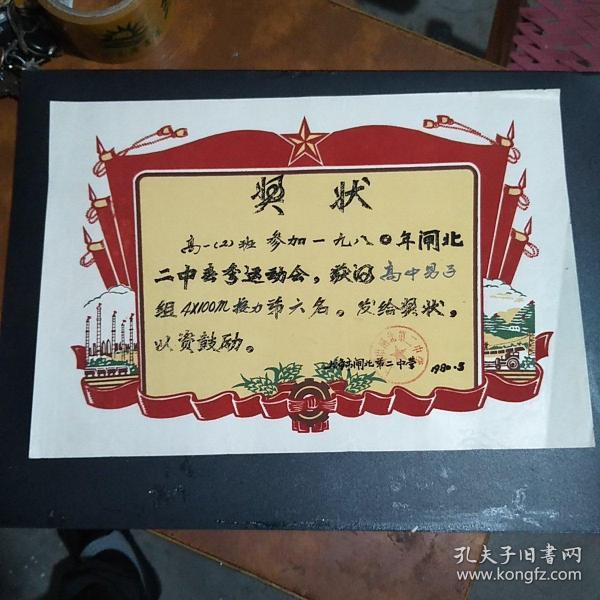 奖 状
高一(2)班 参加一九八〇年闸北
二中春季运动会，获得高中男子
组4X100M接力第六名。发给奖状，
以资鼓励。
上海市闸北第二中学 1980.5
孔夫子旧书网
www.kongfz.com